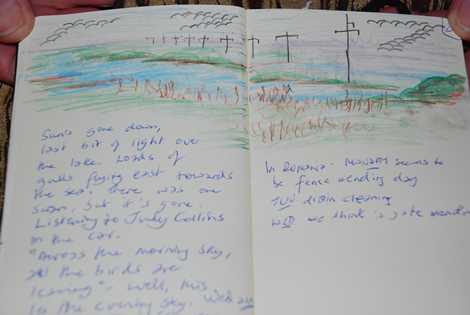 Sun's gone down,
last bit of light over
the lake. Loads of
gulls flying east towards
the sea. There was one
swan, but it's gone.
Listening to Judy Collins
in the car.
"Across the morning sky,
all the birds are
leaving". Well, this
is the evening sky. We
In Romania. MONDAY seems to
be fence mending day
TUE drain cleaning
WED we think is gate mending